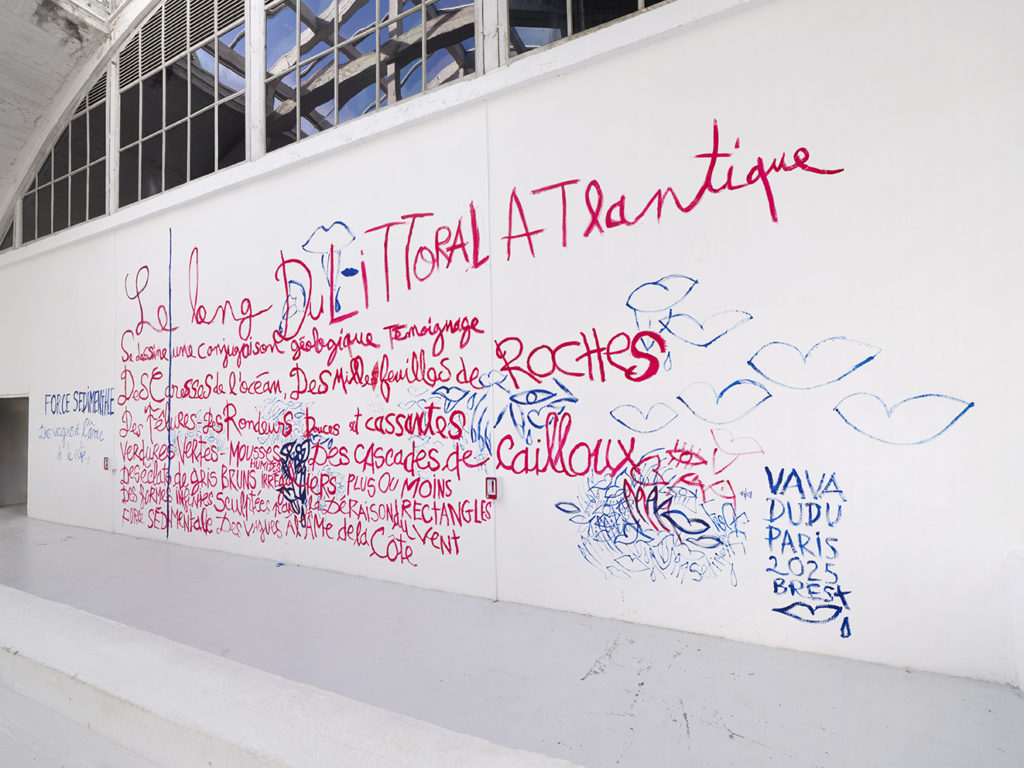 Le long DU LiTTORAL ATlantique
Se dessine une conjugaison géologique Témoignage
Des Caresses de l'océan, Des Millefeuilles de ROCHES
Des Fêlures - des Rondeurs Douces et cassantes
Verdures Vertes - Mousses HUMIDES Des CASCADES de Cailloux
Des éclats de GRIS BRUNS IRRÉGULIERS PLUS OU MOINS
Des FORMES INFINITES Sculptées DÉRAISON RECTANGLES
FORCE SÉDIMENTALE Des Vagues À l'ÂME de la Côte du VENT
FORCE SEDIMENTALE
Des vagues à l'âme
de la côte
VAVA
DUDU
PARIS
2025
BREST